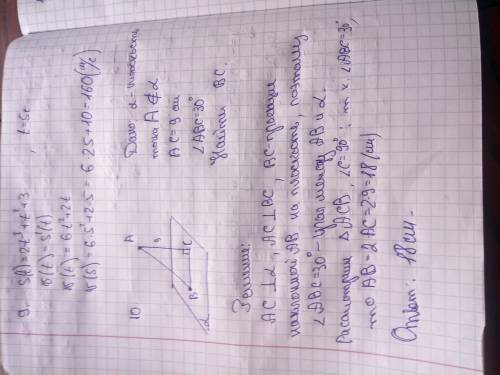 9. S(t) = 2t³ + t² + 3 , t = 5c
v(t) = S'(t)
v(t) = 6t² + 2t
v(5) = 6·5² + 2·5 = 6·25 + 10 = 160 (м/с)
10
A
9
B
C
α
Дано: α - плоскость
точка A ∉ α
AC = 9 см
∠ABC = 30°
Найти BC.
Решение:
AC ⊥ α, AC ⊥ BC, BC - проекция
наклонной AB на плоскость, поэтому
∠ABC = 30° - угол между AB и α.
Рассмотрим △ACB, ∠C = 90°; т.к. ∠ABC = 30°,
то AB = 2AC = 2·9 = 18 (см)
Ответ: 18 см.